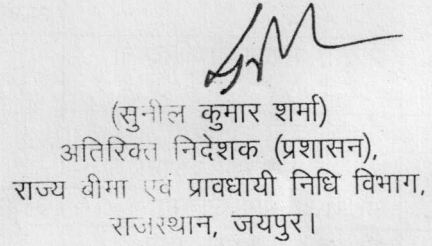 (सुनील कुमार शर्मा)
अतिरिक्त निदेशक (प्रशासन),
राज्य बीमा एवं प्रावधायी निधि विभाग,
राजस्थान, जयपुर।